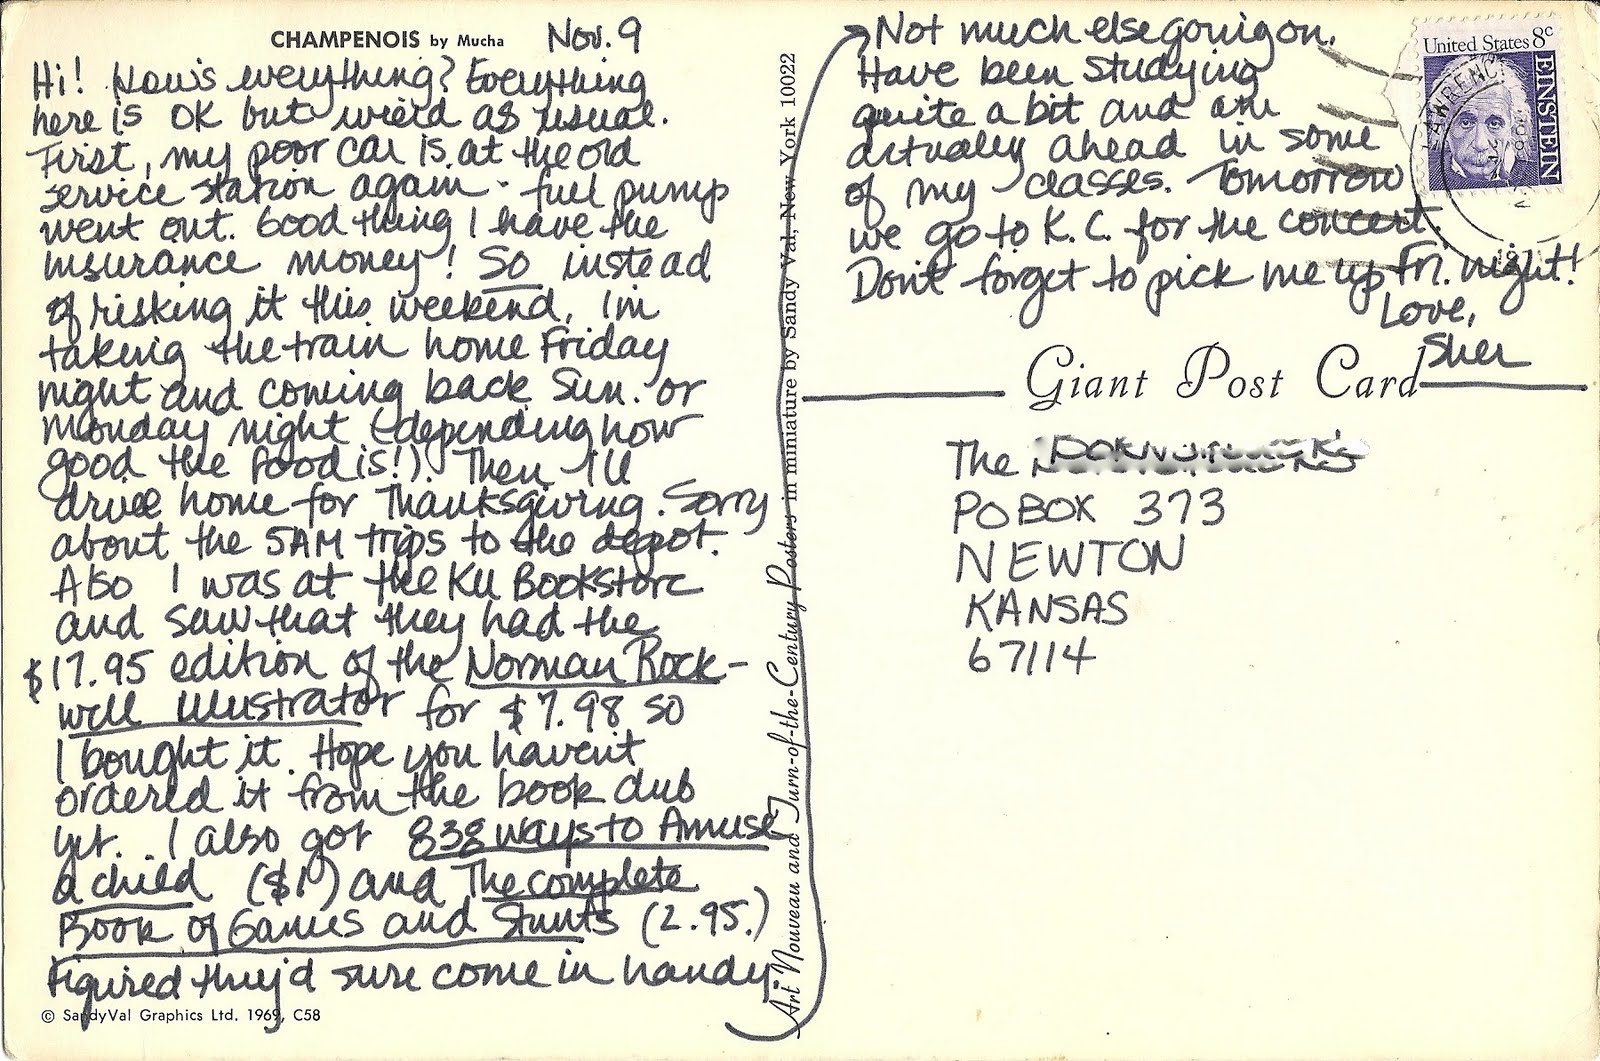 CHAMPENOIS by Mucha
Nov. 9
Hi! How's everything? Everything
here is OK but wierd as usual.
First, my poor car is at the old
service station again - fuel pump
went out. Good thing I have the
insurance money! So instead
of risking it this weekend, I'm
taking the train home Friday
night and coming back Sun. or
Monday night (depending how
good the food is!). Then I'll
drive home for Thanksgiving. Sorry
about the 5AM trips to the depot.
Also I was at the KU Bookstore
and saw that they had the
$17.95 edition of the Norman Rock-
well Illustrator for $7.98 so
I bought it. Hope you haven't
ordered it from the book club
yet. I also got 838 ways to Amuse
a child ($1) and The complete
Book of Games and Stunts (2.95.)
Figured they'd sure come in handy.
© SandyVal Graphics Ltd. 1969, C58
Art Nouveau and Turn-of-the-Century Posters in miniature by Sandy Val, New York 10022
Not much else going on.
Have been studying
quite a bit and am
actually ahead in some
of my classes. Tomorrow
we go to K.C. for the concert.
Don't forget to pick me up Fri. night!
Love,
Sher
United States 8c
EINSTEIN
LAWRENC
Giant Post Card
The
PO BOX 373
NEWTON
KANSAS
67114